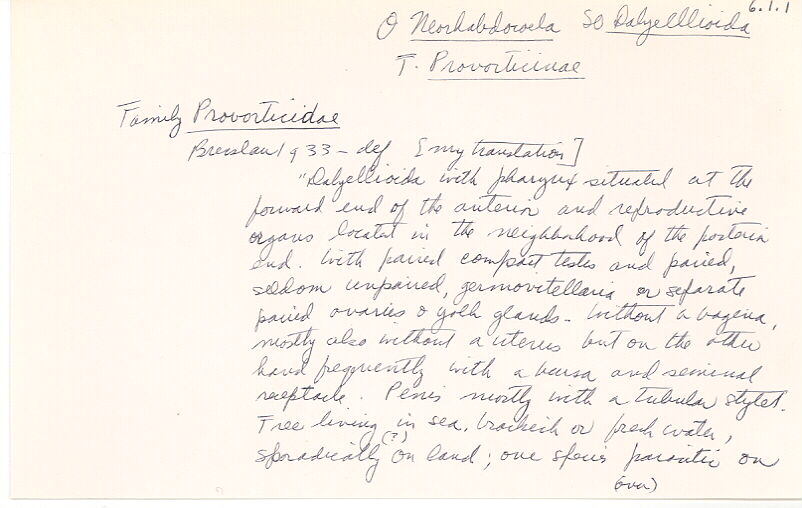 6.1.1
O Neorhabdocoela SO Dalyellioida
T. Provorticinae
Family Provorticidae
Bresslau 1933 - def [my translation]
"Dalyellioida with pharynx situated at the
forward end of the anterior and reproductive
organs located in the neighborhood of the posterior
end. With paired compact testes and paired,
seldom unpaired, germovitellaria or separate
paired ovaries & yolk glands. Without a vagina,
mostly also without a uterus but on the other
hand frequently with a bursa and seminal
receptacle. Penis mostly with a tubular stylet.
Free living in sea, brackish or fresh water,
sporadically (?) on land; one species parasitic on
(over)